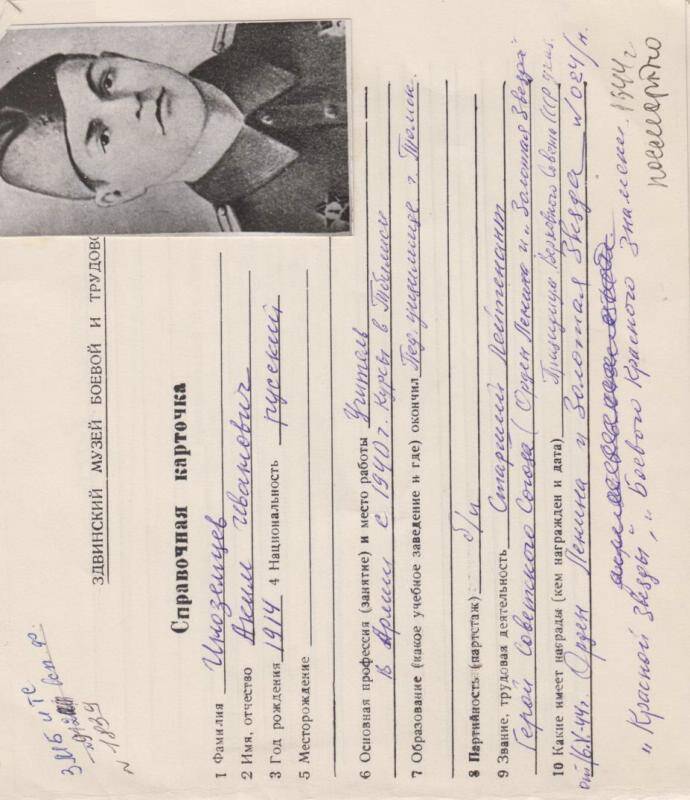 ЗМБ и ТС
N 1839
ЗДВИНСКИЙ МУЗЕЙ БОЕВОЙ И ТРУДОВО
Справочная карточка
1 Фамилия Иноземцев
2 Имя, отчество Аким Иванович
3 Год рождения 1914 4 Национальность русский
5 Месторождение
6 Основная профессия (занятие) и место работы Учитель
В Армии с 1940 г. Курсы в Тбилиси
7 Образование (какое учебное заведение и где) окончил Пед. училище г. Томск.
8 Партийность (партстаж) б/п
9 Звание, трудовая деятельность Старший Лейтенант
Герой Советского Союза (Орден Ленина и „Золотая Звезда"
10 Какие имеет награды (кем награжден и дата) Президиум Верховного Совета СССР указ.
от Орден Ленина и Золотая Звезда N 024/н.
„Красной Звезды", „Боевого Красного Знамени. 1944 г.
посмертно